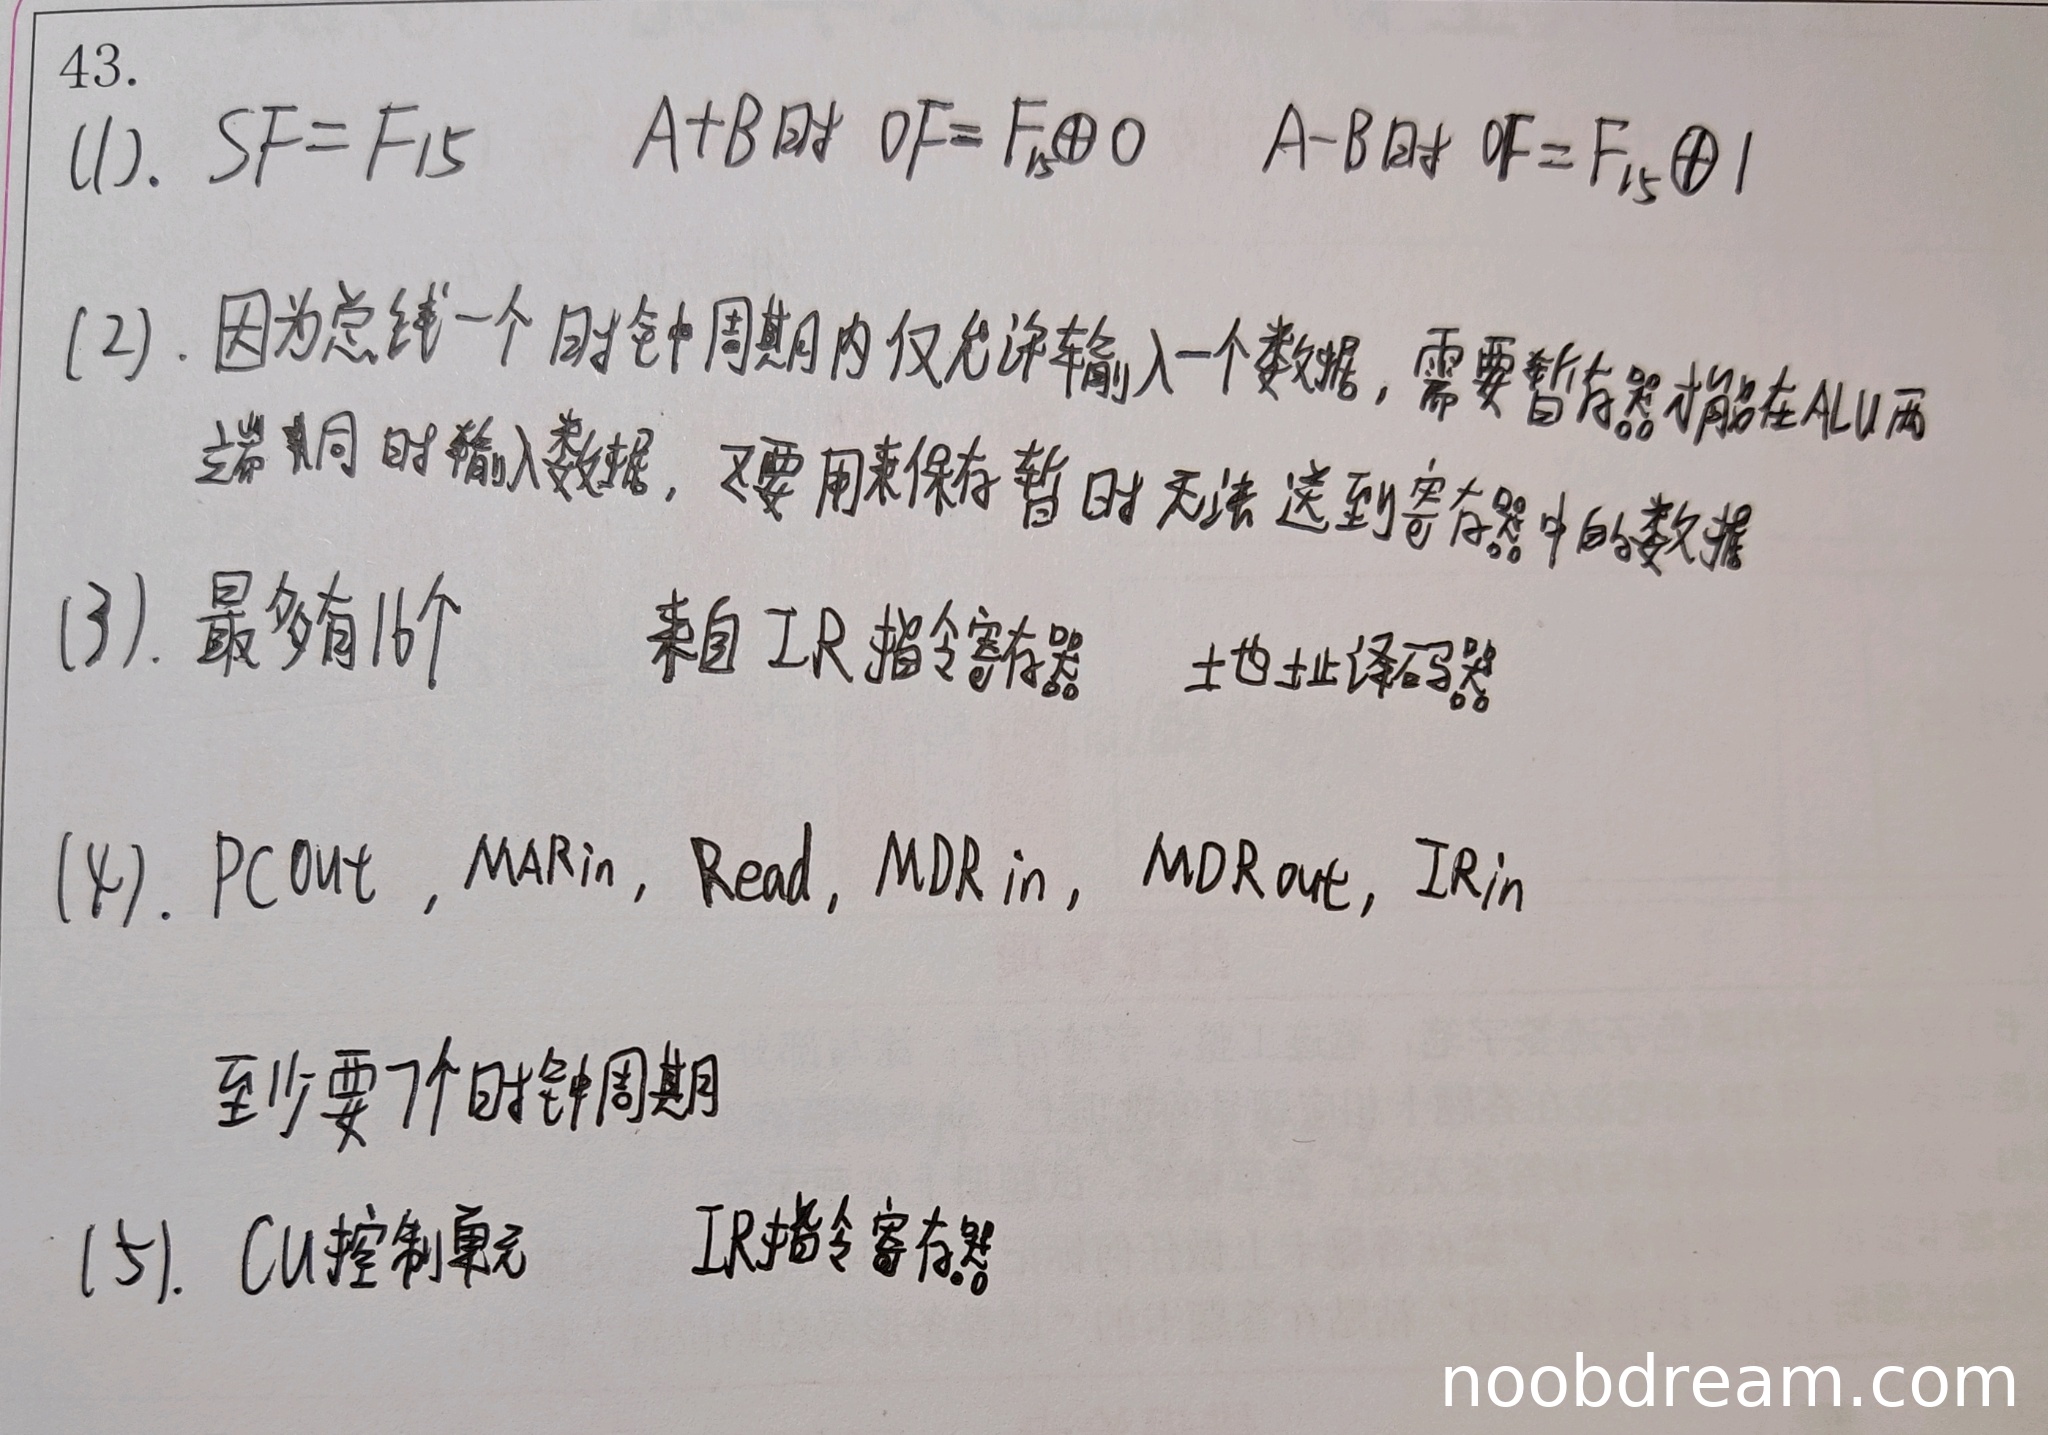 43.
(1). SF=F15 A+B时 OF=F15⊕0 A-B时 OF=F15⊕1
(2). 因为总线一个时钟周期内仅允许输入一个数据,需要暂存器才能在ALU两
端同时输入数据,要用来保存暂时无法送到寄存器中的数据
(3). 最多有16个 来自IR指令寄存器 地址译码器
(4). PCout, MARin, Read, MDRin, MDRout, IRin
至少要7个时钟周期
(5). CU控制单元 IR指令寄存器
noobdream.com